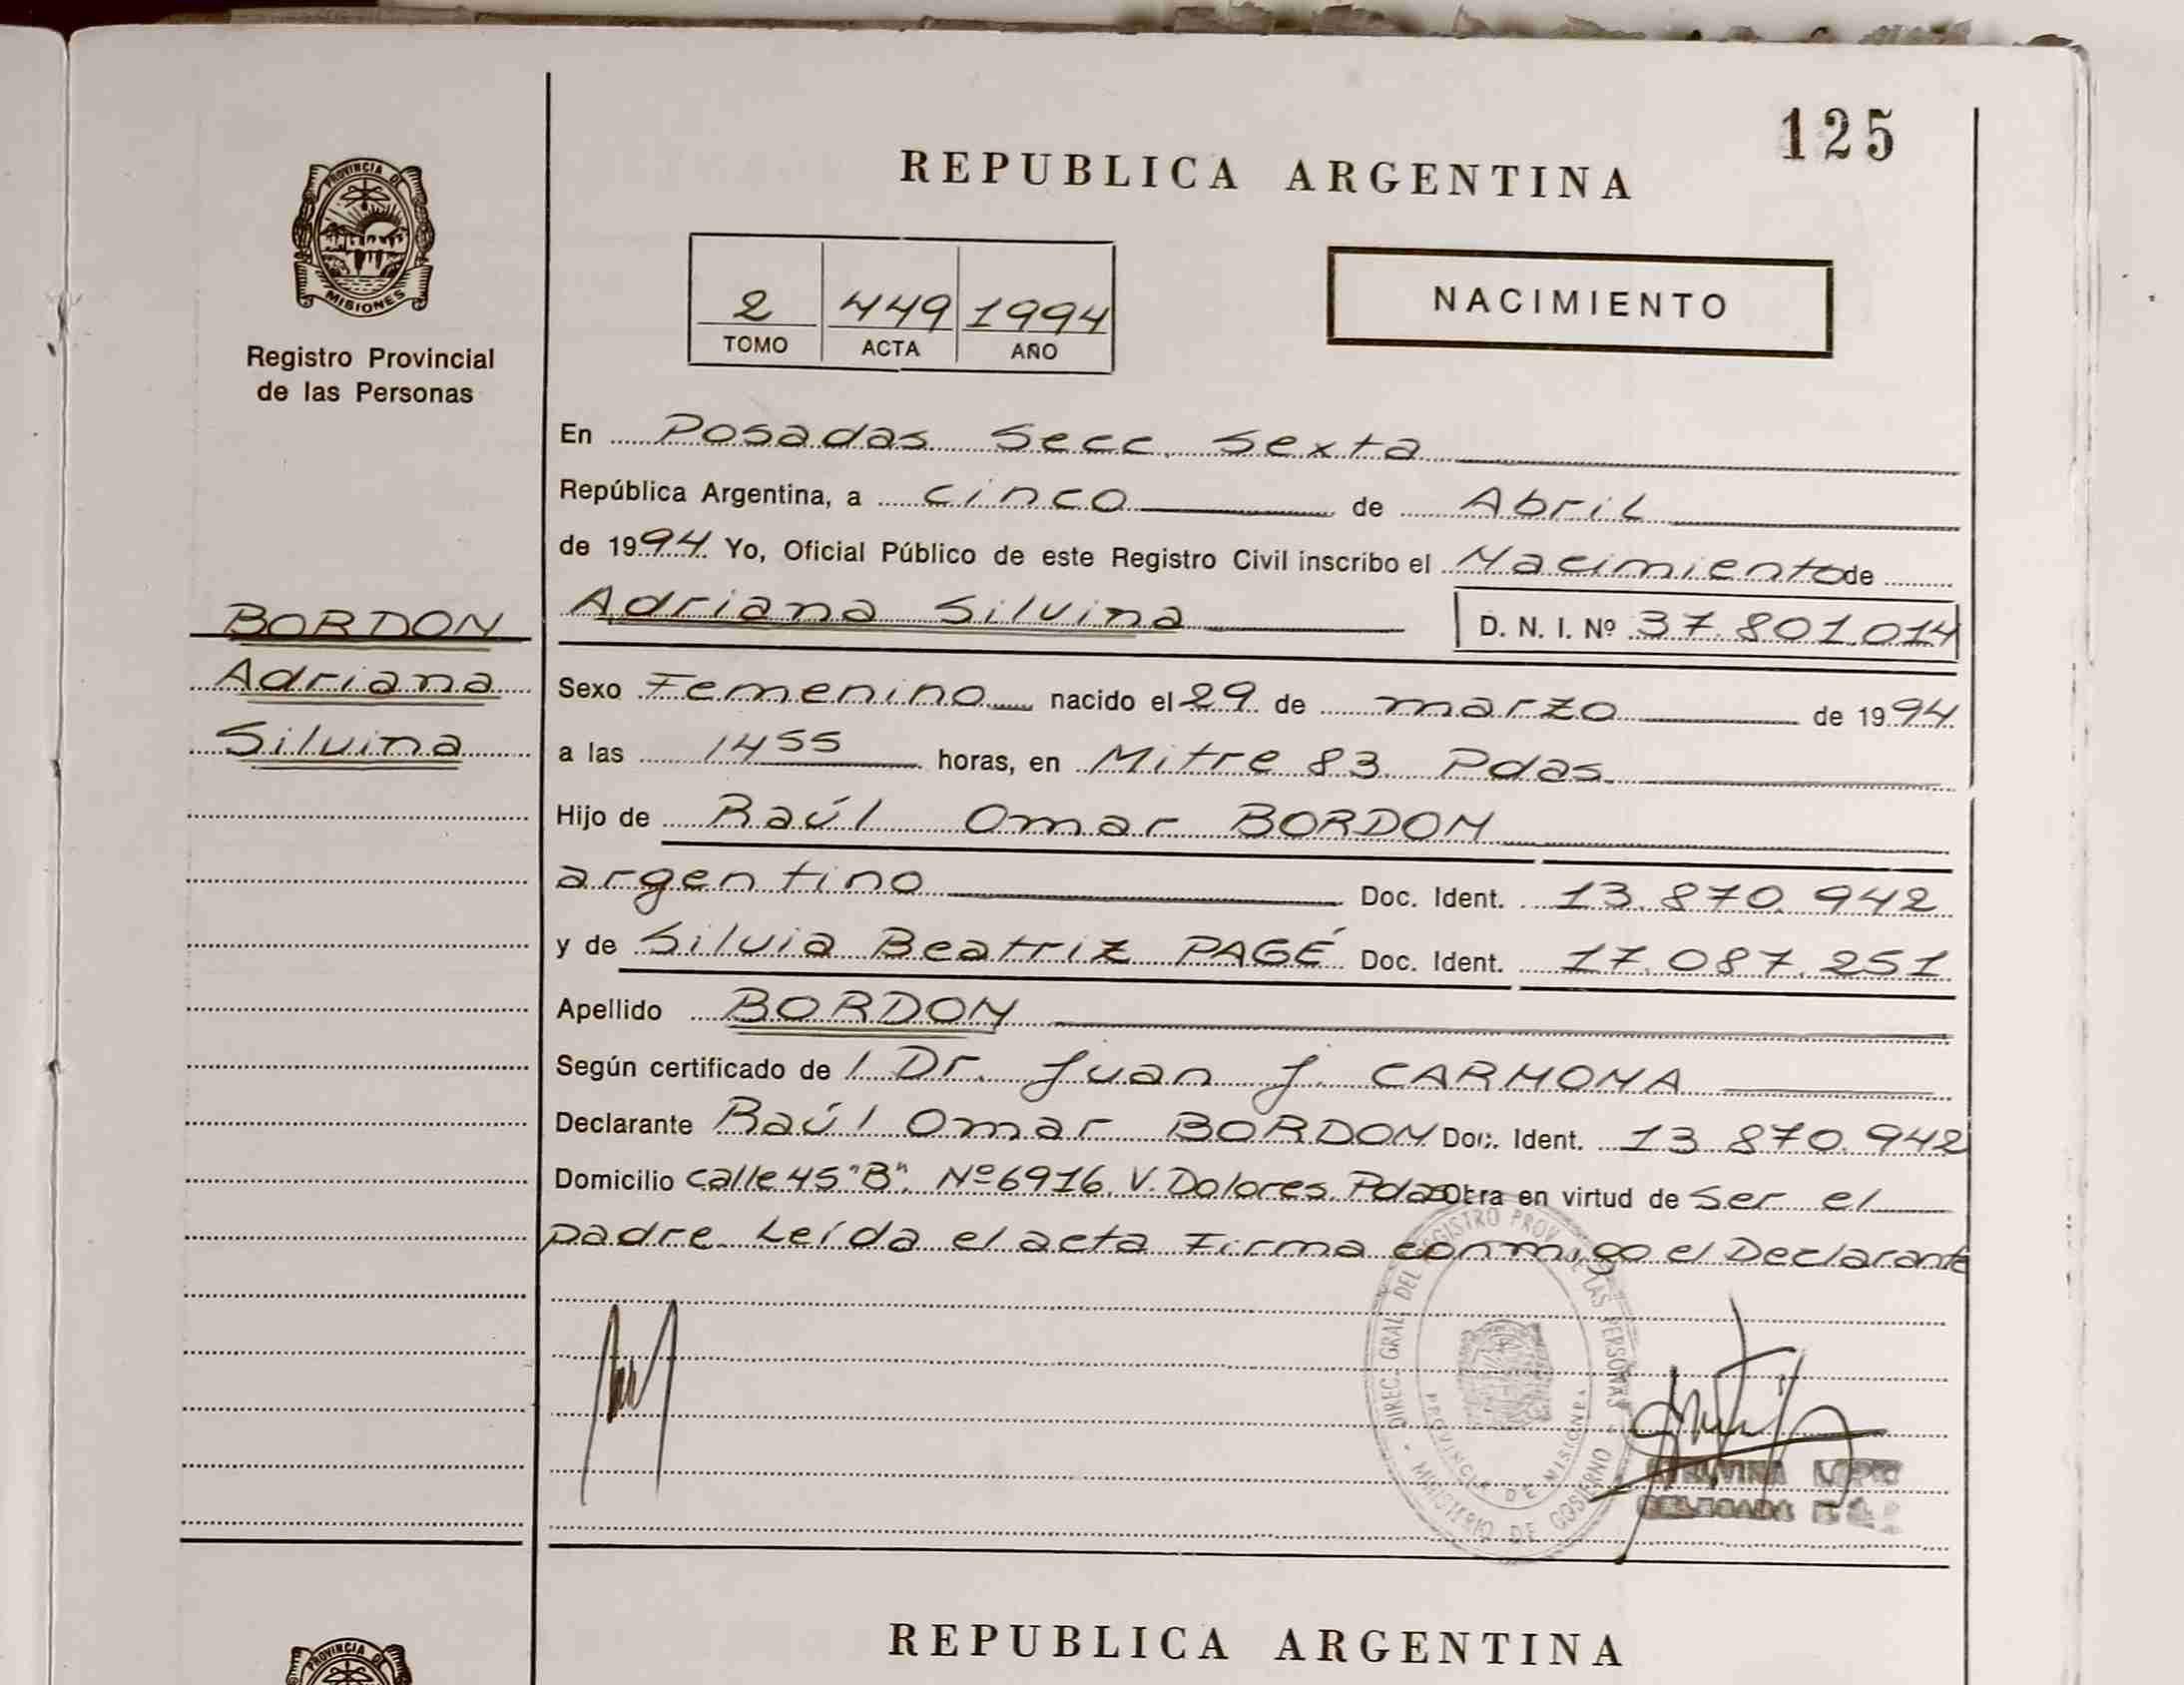 125
REPUBLICA ARGENTINA
PROVINCIA DE
MISIONES
Registro Provincial
de las Personas
2 449 1994
TOMO ACTA AÑO
NACIMIENTO
En Posadas Secc. Sexta
República Argentina, a cinco de Abril
de 1994 Yo, Oficial Público de este Registro Civil inscribo el Nacimiento de
Adriana Silvina D. N. I. Nº 37.801.014
BORDON
Adriana
Silvina
Sexo Femenino nacido el 29 de marzo de 1994
a las 14 55 horas, en Mitre 83 Pdas.
Hijo de Raúl Omar BORDON
argentino Doc. Ident. 13.870.942
y de Silvia Beatriz PAGÉ Doc. Ident. 17.087.251
Apellido BORDON
Según certificado de l Dr. Juan J. CARMONA
Declarante Raúl Omar BORDON Doc. Ident. 13 870.942
Domicilio calle 45 "B". Nº 6916. V. Dolores. Pdas Obra en virtud de ser el
padre. Leída el acta Firma conmigo el Declarante
DIREC. GRAL. DEL REGISTRO PROV. DE LAS PERSONAS
MINISTERIO DE GOBIERNO
PROVINCIA DE MISIONES
LOPEZ
DELEGADA
REPUBLICA ARGENTINA
PROVINCIA DE